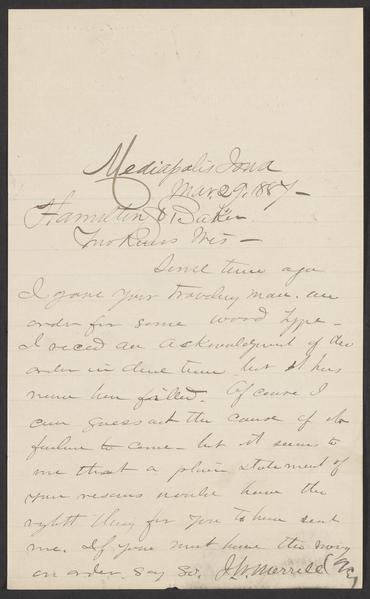 Mediapolis Iowa
Mar. 29, 1887 -
Hamilton & Baker
Two Rivers Wis -
Some time ago
I gave your traveling man. an
order for some wood type -
I reced an acknowledgment of the
order in due time, but it has
never been filled. Of course I
can guess at the cause of its
failure to come - but it seems to
me that a plain statement of
your reasons would have the
rightt thing for you to have sent
me. If you must have the money
on order, say so. J. W. Merrill